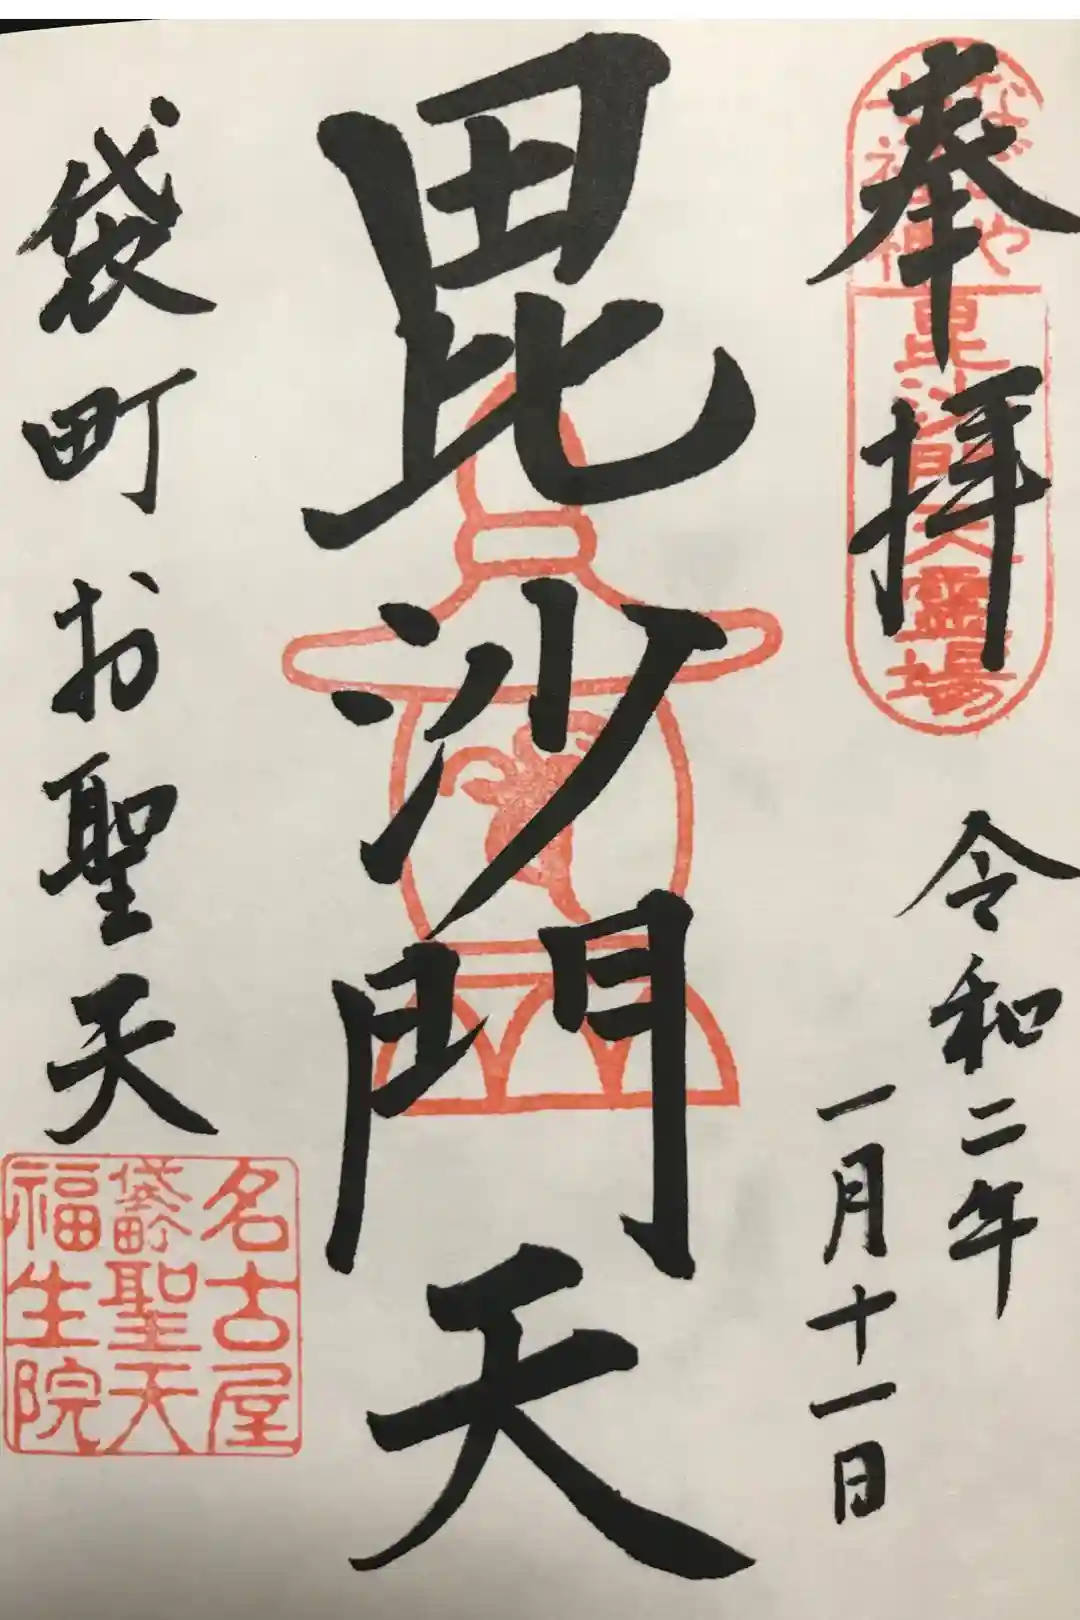 奉拝
なごや
七福神
毘沙門天霊場
令和二年
一月十一日
毘沙門天
袋町お聖天
名古屋
袋町聖天
福生院